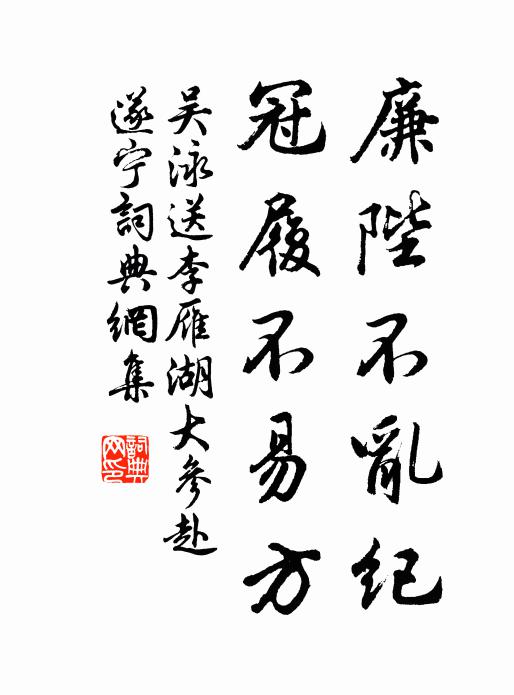 廉陛不亂紀
冠履不易方
吴泳送李雁湖大參赴
遂宁詞典網集
詞典网印